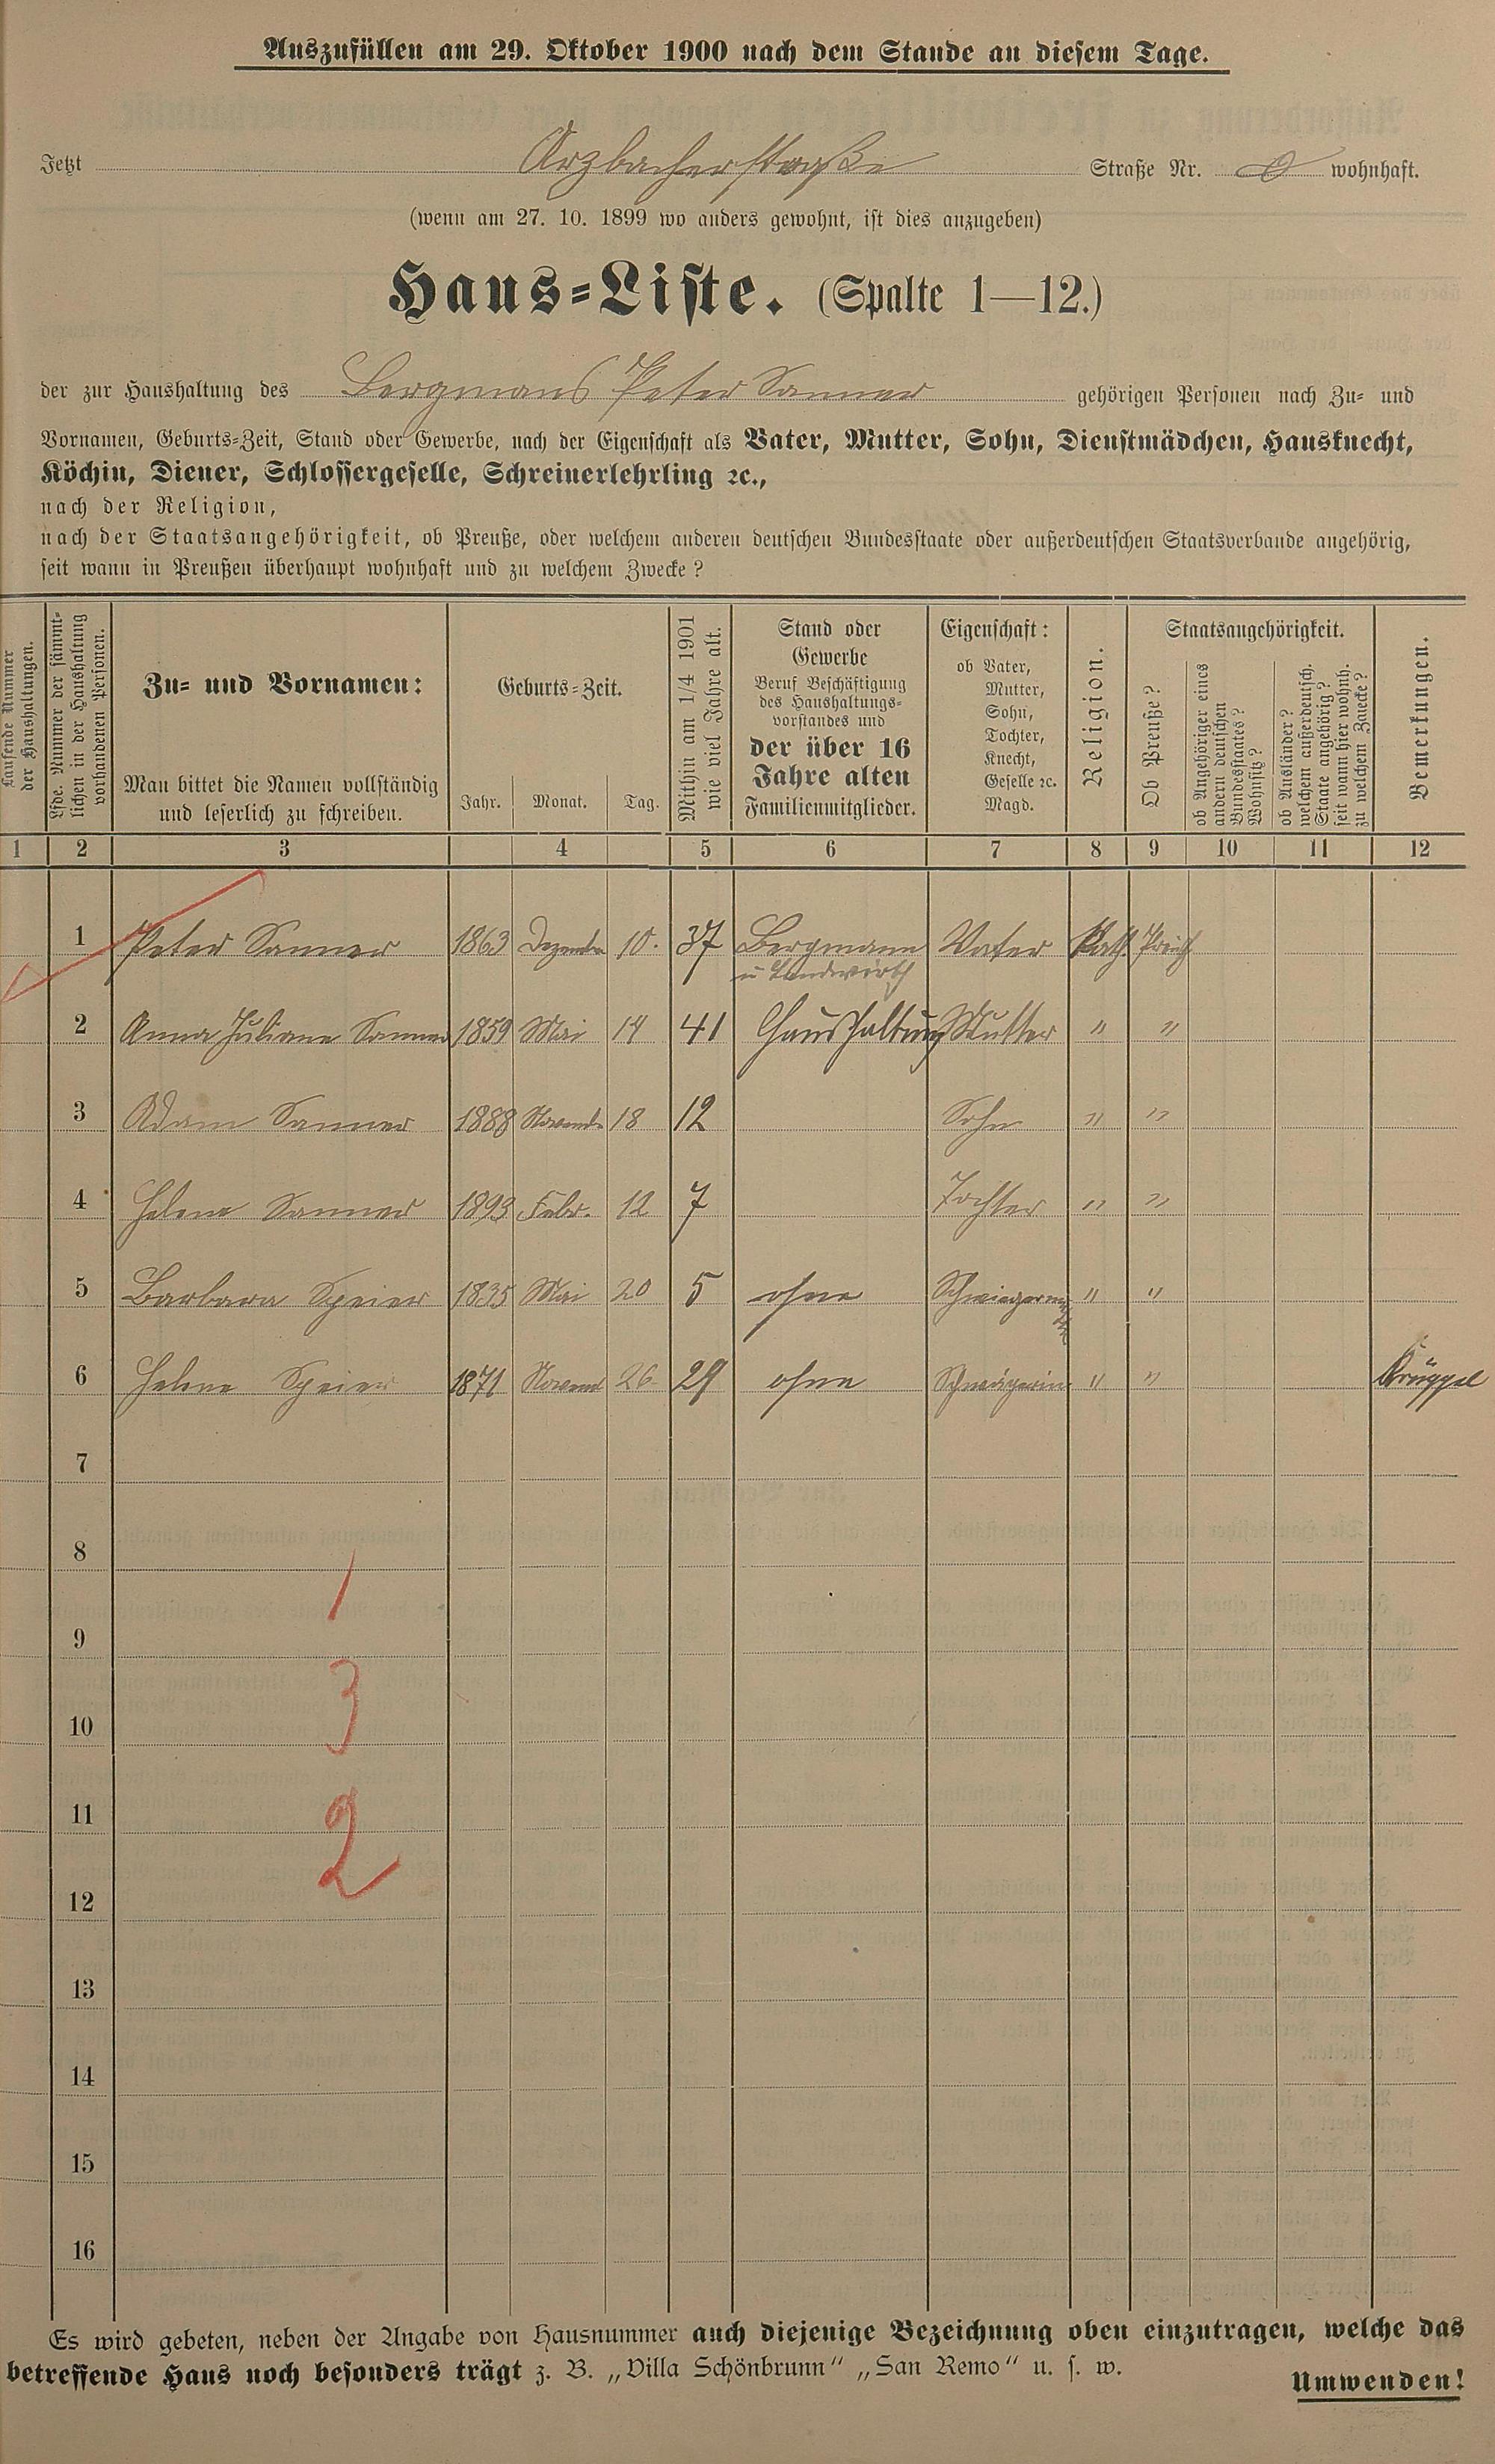 Auszufüllen am 29. Oktober 1900 nach dem Stande an diesem Tage.
Jetzt Arzbacherstraße Straße Nr. 0 wohnhaft.
(wenn am 27. 10. 1899 wo anders gewohnt, ist dies anzugeben)
Haus-Liste. (Spalte 1—12.)
der zur Haushaltung des Bergmans Peter Sanner gehörigen Personen nach Zu- und
Vornamen, Geburts-Zeit, Stand oder Gewerbe, nach der Eigenschaft als Vater, Mutter, Sohn, Dienstmädchen, Hausknecht,
Köchin, Diener, Schlossergeselle, Schreinerlehrling ꝛc.,
nach der Religion,
nach der Staatsangehörigkeit, ob Preuße, oder welchem anderen deutschen Bundesstaate oder außerdeutschen Staatsverbande angehörig,
seit wann in Preußen überhaupt wohnhaft und zu welchem Zwecke?
Laufende Nummer
der Haushaltungen.
Lfde. Nummer der sämmt-
lichen in der Haushaltung
vorhandenen Personen.
Zu- und Vornamen:
Man bittet die Namen vollständig
und leserlich zu schreiben.
Geburts-Zeit.
Jahr. Monat. Tag.
Mithin am 1/4 1901
wie viel Jahre alt.
Stand oder
Gewerbe
Beruf Beschäftigung
des Haushaltungs-
vorstandes und
der über 16
Jahre alten
Familienmitglieder.
Eigenschaft:
ob Vater,
Mutter,
Sohn,
Tochter,
Knecht,
Geselle ꝛc.
Magd.
Religion.
Staatsangehörigkeit.
Ob Preuße?
ob Angehöriger eines
andern deutschen
Bundesstaates?
Wohnsitz?
ob Ausländer?
welchem außerdeutsch.
Staate angehörig?
seit wann hier wohnh.
zu welchem Zwecke?
Bemerkungen.
1 2 3 4 5 6 7 8 9 10 11 12
1 Peter Sanner 1863 Dezember 10. 37 Bergmann Vater Kath. Preuß
u Landwirth
2 Anna Juliane Sanner 1859 Mai 14 41 Haushaltung Mutter " "
3 Adam Sanner 1888 Novemb. 18 12 Sohn " "
4 Helene Sanner 1893 Febr. 12 7 Tochter " "
5 Barbara Speier 1835 Mai 20 5 ohne Schwiegermutter " "
6 Helene Speier 1871 Novemb 26 29 ohne Schwägerin " " Krüppel
7
8
1
9
3
10
11
2
12
13
14
15
16
Es wird gebeten, neben der Angabe von Hausnummer auch diejenige Bezeichnung oben einzutragen, welche das
betreffende Haus noch besonders trägt z. B. „Villa Schönbrunn“ „San Remo“ u. s. w.
Umwenden!